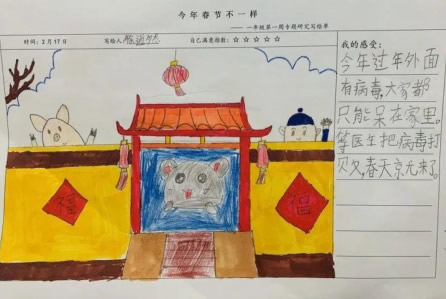 今年春节不一样
——一年级第一期专题研究写绘单
时间：2月17日 写绘人 自己满意指数：☆☆☆☆☆
我的感受：
今年过年外面
有病毒，大家都
只能呆在家里。
等医生把病毒打
败，春天就来了。
福
福